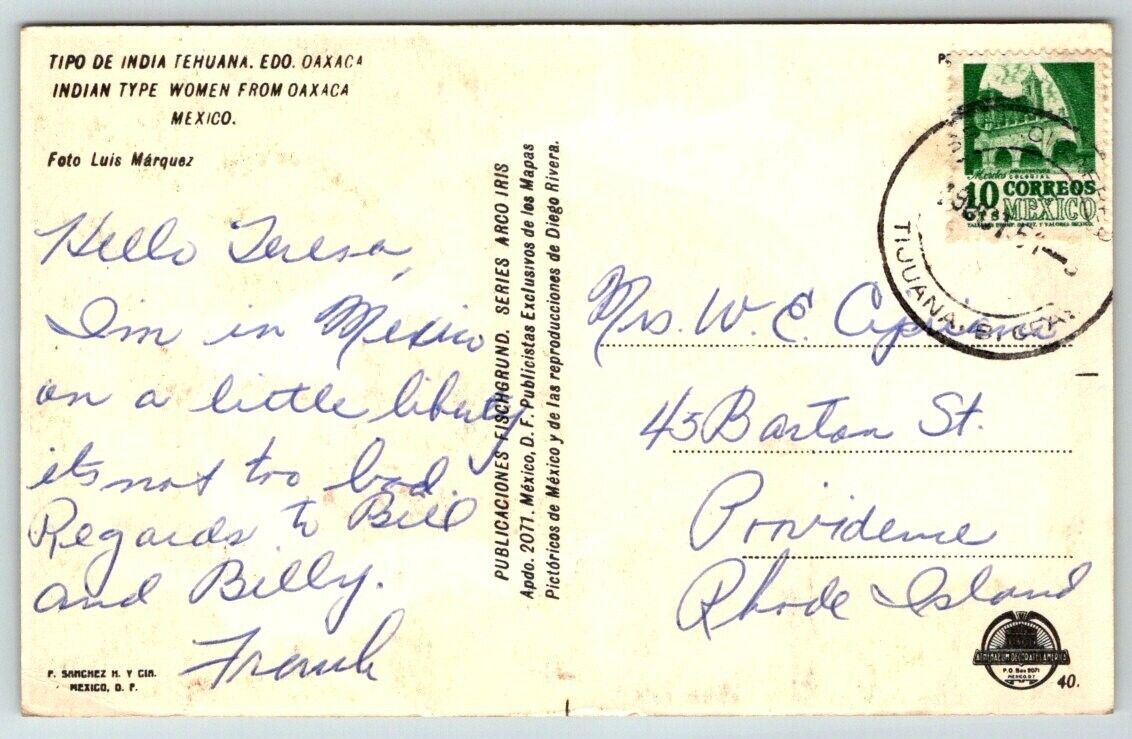 TIPO DE INDIA TEHUANA. EDO. OAXACA
INDIAN TYPE WOMEN FROM OAXACA
MEXICO.
Foto Luis Márquez
Hello Teresa,
I'm in Mexico
on a little liberty
its not too bad.
Regards to Bill
and Billy.
Frank
P. SANCHEZ H. Y CIA.
MEXICO, D. F.
PUBLICACIONES FISCHGRUND. SERIES ARCO IRIS
Apdo. 2071. México, D. F. Publicistas Exclusivos de los Mapas
Pictóricos de México y de las reproducciones de Diego Rivera.
Morelos ARQUITECTURA COLONIAL
10 CORREOS
CTS MEXICO
TIJUANA, B. CFA.
Mrs. W. E. Cipriano
45 Barton St.
Providence
Rhode Island
P.O. Box 2071
MEXICO, D.F.
40.